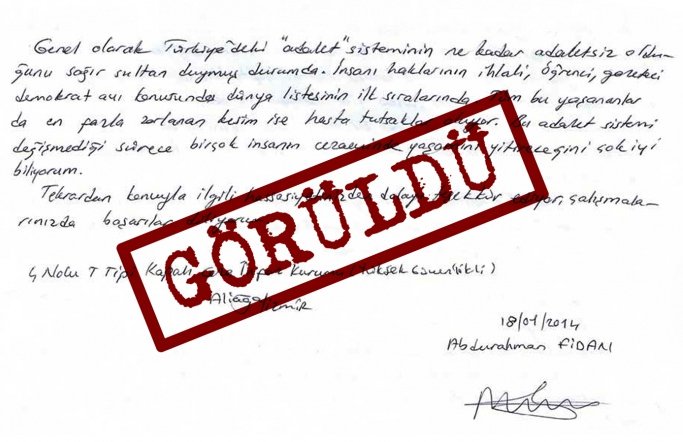 Genel olarak Türkiye'deki "adalet" sisteminin ne kadar adaletsiz oldu-
ğunu sağır sultan duymuş durumda. İnsanı haklarının ihlali, öğrenci, gazeteci
demokrat avı konusunda dünya listesinin ilk sıralarında. Tüm bu yaşananlar
da en fazla zorlanan kesim ise hasta tutsaklar oluyor. Bu adalet sistemi
değişmediği sürece birçok insanın cezaevinde yaşamını yitireceğini çok iyi
biliyorum.
Tekrardan konuyla ilgili hassasiyetinizden dolayı teşekkür ediyor, çalışmala-
rınızda başarılar diliyorum.
GÖRÜLDÜ
4 Nolu T Tipi Kapalı Kurumu (Yüksek Güvenlikli)
Aliağa İzmir
18/01/2014
Abdurahman FİDAN